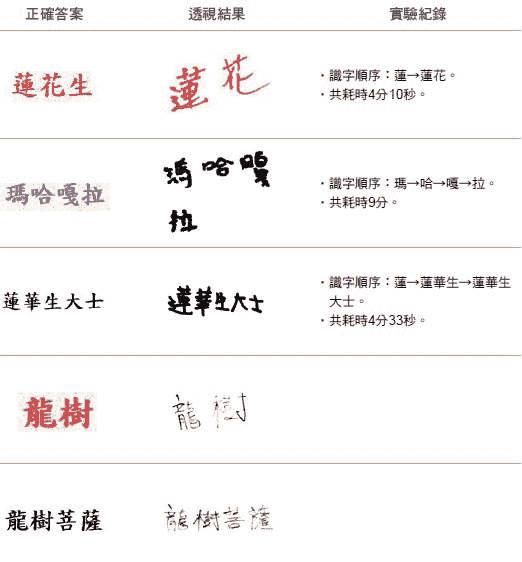 正確答案 透視結果 實驗紀錄
蓮花生 蓮花 ・識字順序：蓮→蓮花。
・共耗時4分10秒。
瑪哈嘎拉 瑪哈嘎 ・識字順序：瑪→哈→嘎→拉。
拉 ・共耗時9分。
蓮華生大士 蓮華生大士 ・識字順序：蓮→蓮華生→蓮華生
大士。
・共耗時4分33秒。
龍樹 龍樹
龍樹菩薩 龍樹菩薩